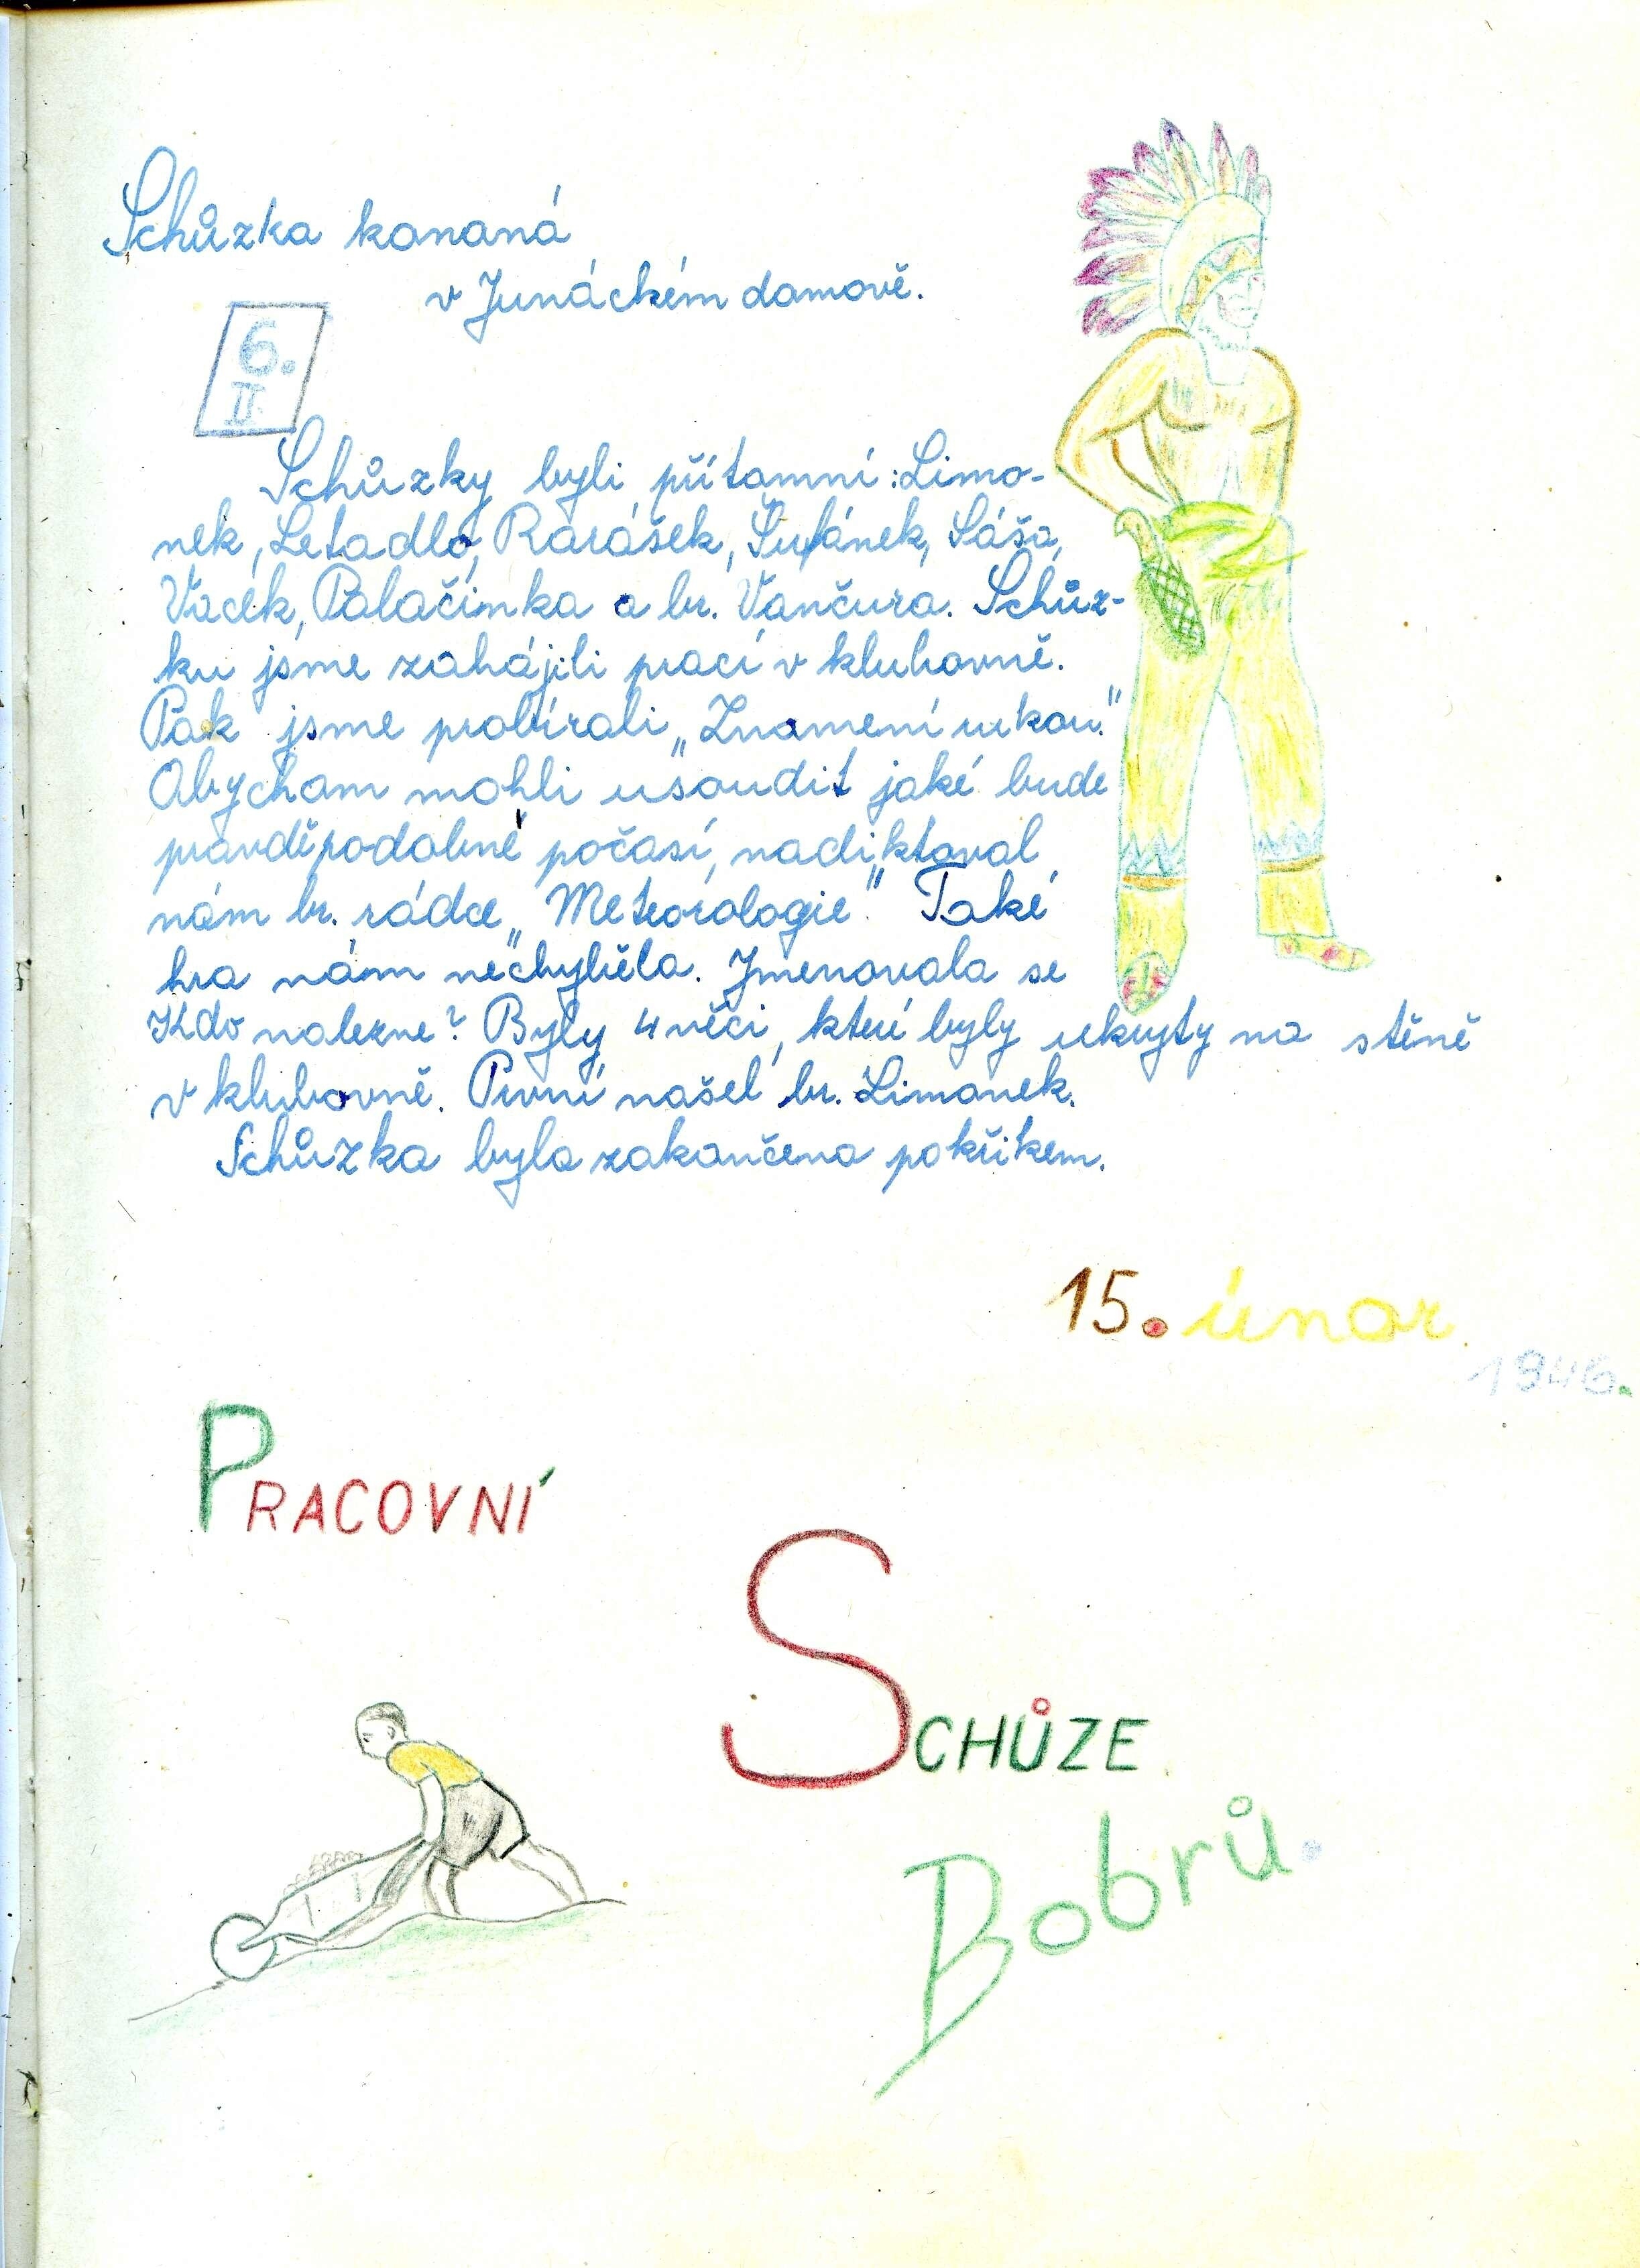 Schůzka konaná
v Junáckém domově.
6.
II.
Schůzky byli přítomni: Limo-
nek, Letadlo, Rarášek, Šufánek, Sáša,
Vacek, Palačinka a br. Vančura. Schůz-
ku jsme zahájili prací v klubovně.
Pak jsme probírali „Znamení rukou."
Abychom mohli usoudit jaké bude
pravděpodobné počasí, nadiktoval
nám br. rádce „Meteorologie". Také
hra nám nechyběla. Jmenovala se
Kdo nalezne? Byly 4 věci, které byly ukryty na stěně
v klubovně. První našel br. Limonek.
Schůzka byla zakončena pokřikem.
15. únor
1946.
PRACOVNÍ
SCHŮZE
Bobrů.